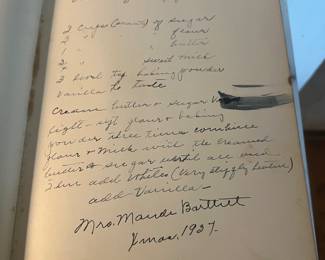 2 Cups (scant) of sugar
2 " " flour
1 " " butter
1 " sweet milk
3 level tsp baking powder
Vanilla to taste
Cream butter & sugar
light - sift flour & baking
powder three times combine
flour & milk with the creamed
butter & sugar until all used
Then add Whites (Very stiffly beaten)
add Vanilla -
Mrs. Maude Bartlett
Xmas, 1927.